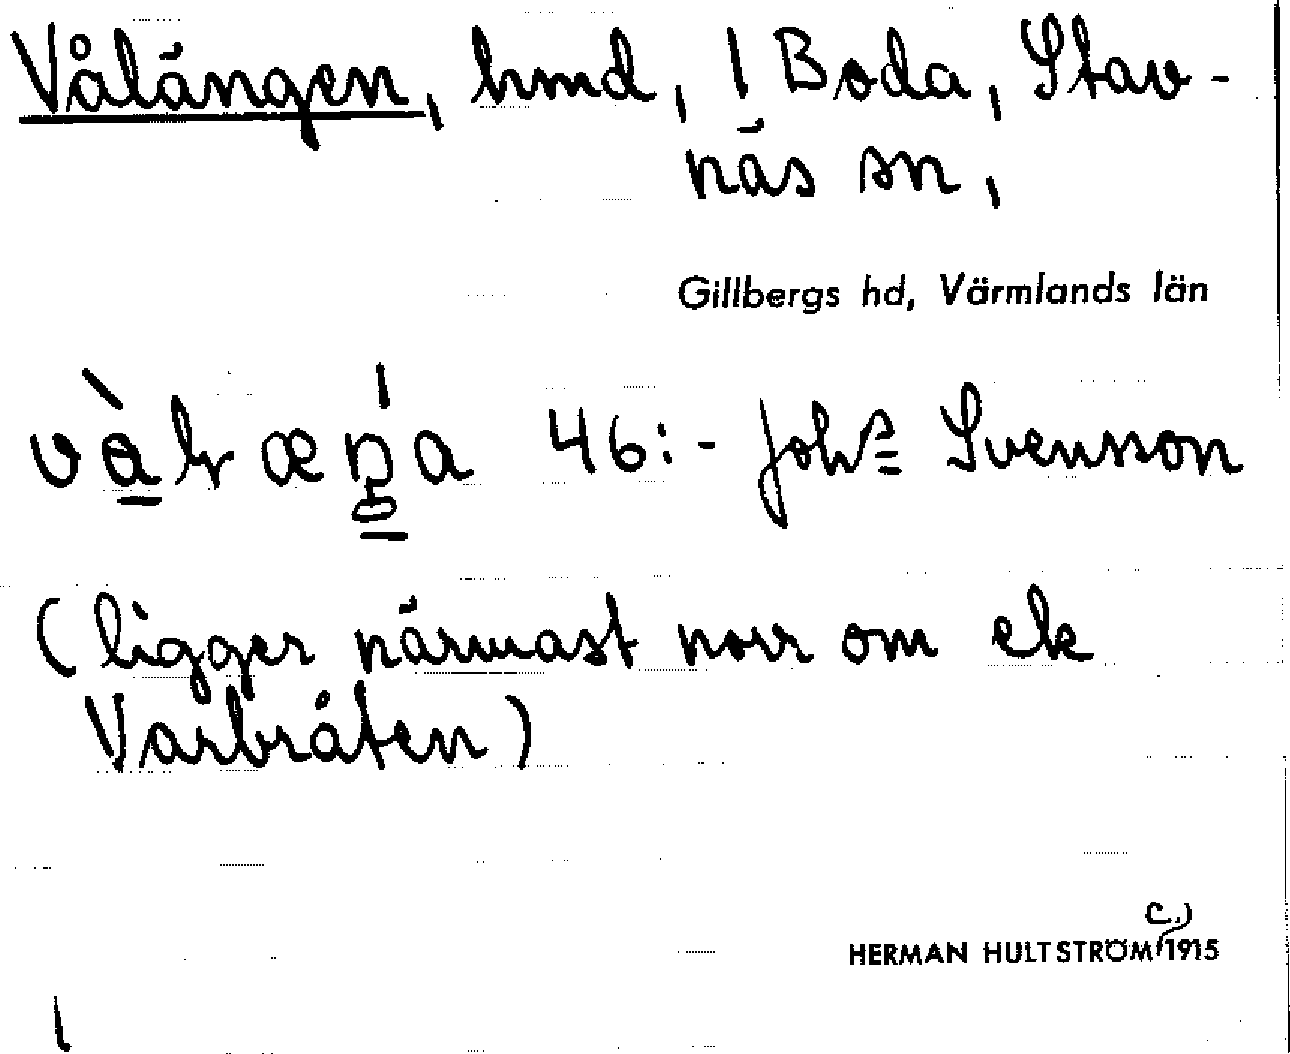 Vålängen, hmd, ! Boda, Stav-
näs sn,
Gillbergs hd, Värmlands län
46:- Johs Svensson
(ligger närmast norr om ek
Varbråten)
c.)
HERMAN HULTSTRÖM 1915